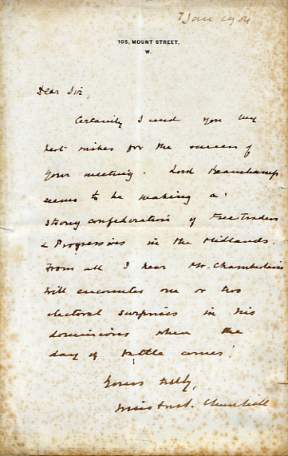 7 Jan 1904
105, MOUNT STREET,
W.
Dear Sir,
Certainly I send you my
best wishes for the success of
your meeting. Lord Beauchamp
seems to be making a
strong confederation of Free Traders
& Progressives in the Midlands.
From all I hear Mr. Chamberlain
will encounter one or two
electoral surprises in his
dominions when the
day of battle comes!
Yours fttly,
Winston S. Churchill